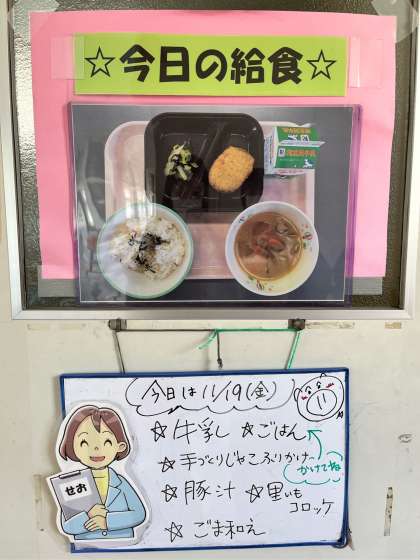 ☆今日の給食☆
今日は11/19(金)
11
☆牛乳 ☆ごはん
☆手づくりじゃこふりかけ
かけてね
☆豚汁 ☆里いも
コロッケ
☆ごま和え
せお